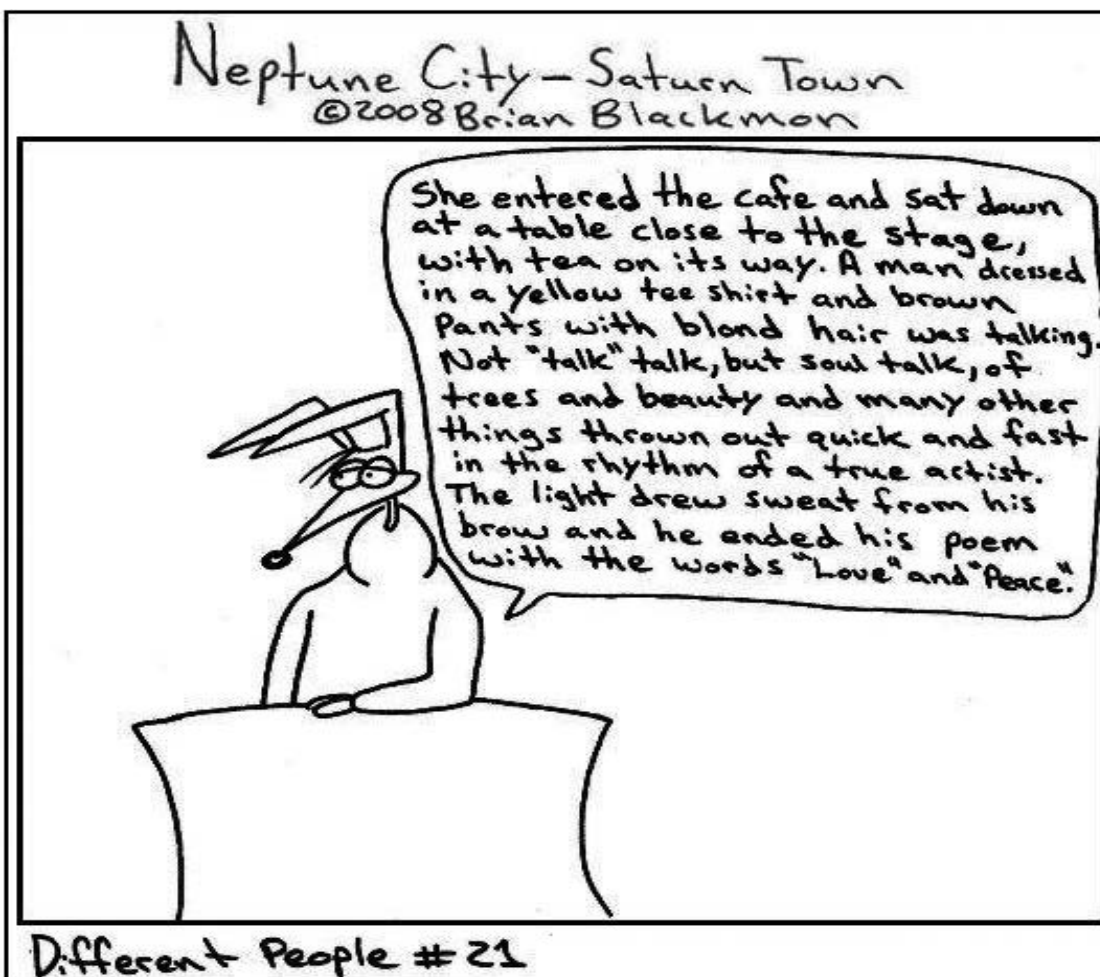 Neptune City - Saturn Town
©2008 Brian Blackmon
She entered the cafe and sat down
at a table close to the stage,
with tea on its way. A man dressed
in a yellow tee shirt and brown
pants with blond hair was talking.
Not "talk" talk, but soul talk, of
trees and beauty and many other
things thrown out quick and fast
in the rhythm of a true artist.
The light drew sweat from his
brow and he ended his poem
with the words "Love" and "Peace".
Different People #21